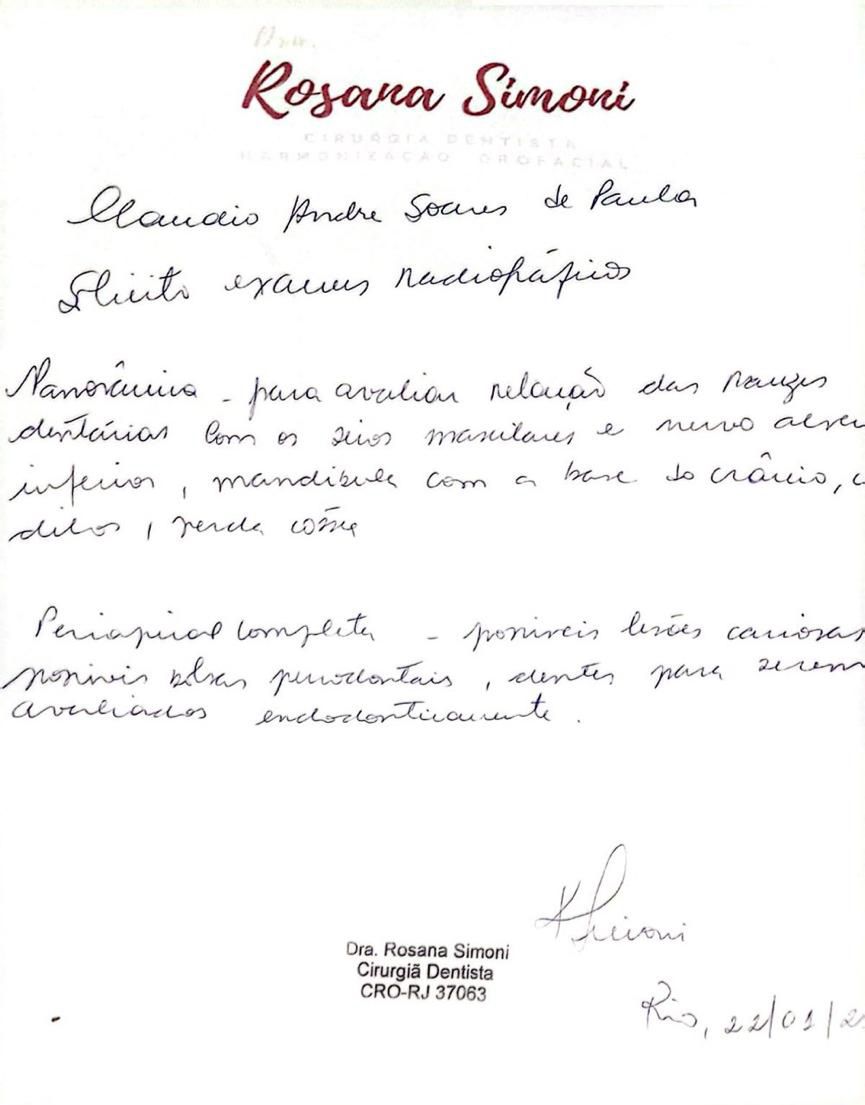 Dra.
Rosana Simoni
CIRURGIÃ DENTISTA
HARMONIZAÇÃO OROFACIAL
Claudio Andre Soares de Paula
Solicito exames radiográficos
Panorâmica - para avaliar relação das raízes
dentárias com os seios maxilares e nervo alveo
inferior, mandíbula com a base do crânio, c
dilos, perda óssea
Periapical completa - possíveis lesões cariosas
possíveis bolsas periodontais, dentes para serem
avaliados endodonticamente.
Simoni
Dra. Rosana Simoni
Cirurgiã Dentista
CRO-RJ 37063
Rio, 22/01/2